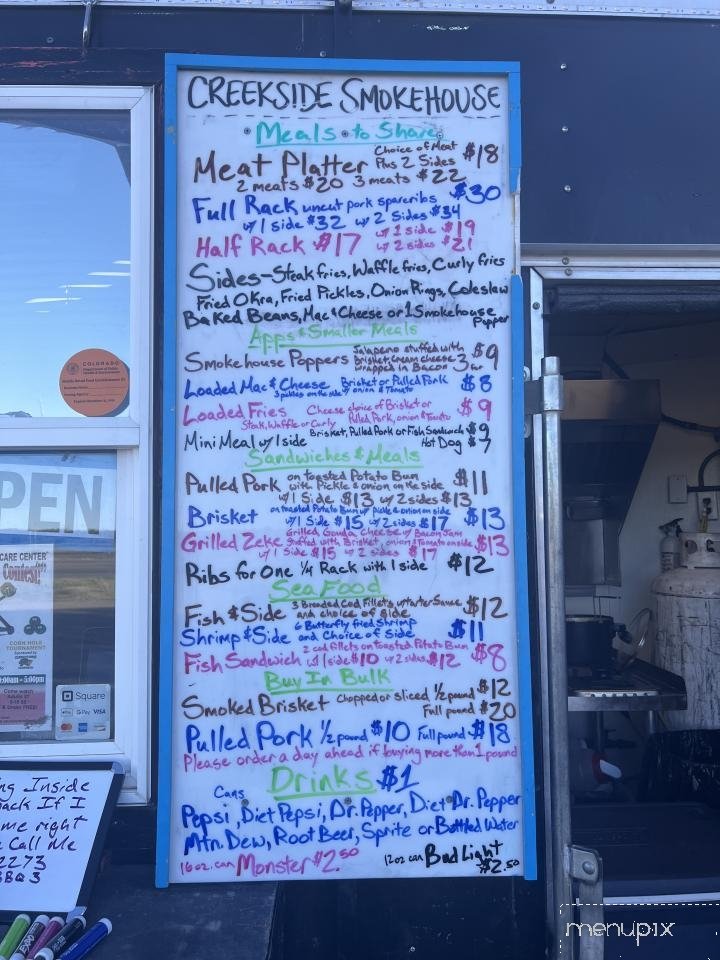 CREEKSIDE SMOKEHOUSE
Meals to Share
Meat Platter Choice of Meat Plus 2 Sides $18
2 meats $20 3 meats $22
Full Rack uncut pork spareribs $30
w/ 1 side $32 w/ 2 Sides $34
Half Rack $17 w/ 1 side $19
w/ 2 sides $21
Sides - Steak fries, Waffle fries, Curly fries
Fried Okra, Fried Pickles, Onion Rings, Coleslaw
Baked Beans, Mac & Cheese or 1 Smokehouse Popper
Apps & Smaller Meals
Smokehouse Poppers Jalapeno stuffed with Brisket, cream cheese wrapped in Bacon 3 for $9
Loaded Mac & Cheese Brisket or Pulled Pork $8
3 pickles on the side w/ onion & Tomato
Loaded Fries Cheese choice of Brisket or $9
Steak, Waffle or Curly Pulled Pork, onion & Tomato
Mini Meal w/ 1 side Brisket, Pulled Pork or Fish Sandwich $9
Hot Dog $7
Sandwiches & Meals
Pulled Pork on toasted Potato Bun with Pickle & onion on the side $11
w/ 1 Side $13 w/ 2 sides $13
Brisket on toasted Potato Bun w/ pickle & onion on side $13
w/ 1 Side $15 w/ 2 sides $17
Grilled Zeke Grilled, Gouda cheese w/ Bacon Jam Stuffed with Brisket, onion & Tomato on side $13
w/ 1 Side $15 w/ 2 sides $17
Ribs for One 1/4 Rack with 1 side $12
Sea Food
Fish & Side 3 Breaded Cod Fillets w/ tarter Sauce and choice of side $12
Shrimp & Side 6 Butterfly fried Shrimp and Choice of Side $11
Fish Sandwich 2 cod fillets on Toasted Potato Bun $8
w/ 1 side $10 w/ 2 sides $12
Buy In Bulk
Smoked Brisket Chopped or sliced 1/2 pound $12
Full pound $20
Pulled Pork 1/2 pound $10 Full pound $18
Please order a day ahead if buying more than 1 pound
Drinks $1
Cans
Pepsi, Diet Pepsi, Dr. Pepper, Diet Dr. Pepper
Mtn. Dew, Root Beer, Sprite or Bottled Water
16 oz. can Monster $2.50
12 oz can Bud Light $2.50
COLORADO
PEN
CARE CENTER
Contest!!
CORN HOLE
TOURNAMENT
Square
G Pay VISA
ng Inside
back If I
me right
Call Me
2273
BBQ3
EXPO
menupix